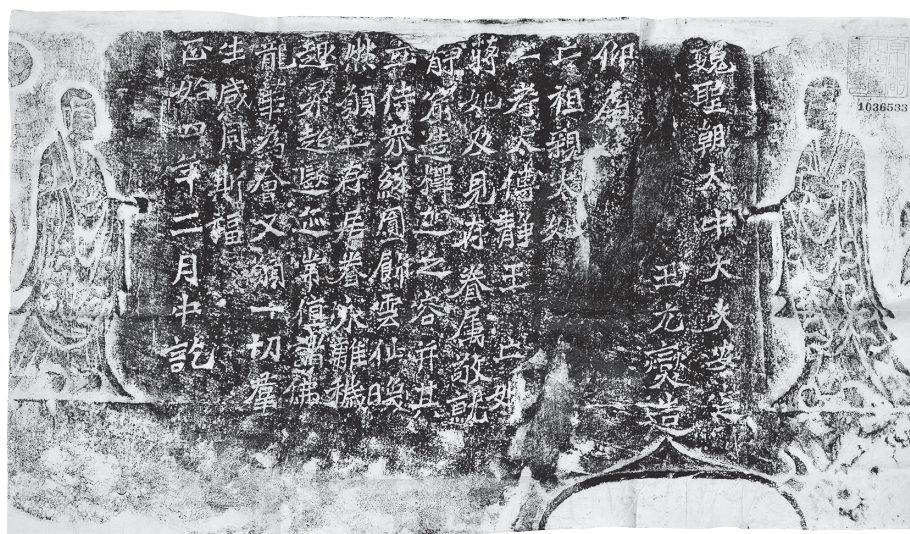 魏聖朝太中大夫安定
王元燮造
仰為
亡祖親太妃
亡考太傅靜王 亡妣
蔣妃及見存眷屬敬就
靜窟造釋迦之容并其
立侍眾綵圓飾雲仙㬇
然願亡存居眷永離穢
趣昇超遐迹常值諸佛
龍華為會又願一切群
生咸同斯福
正始四年二月中訖
1036533